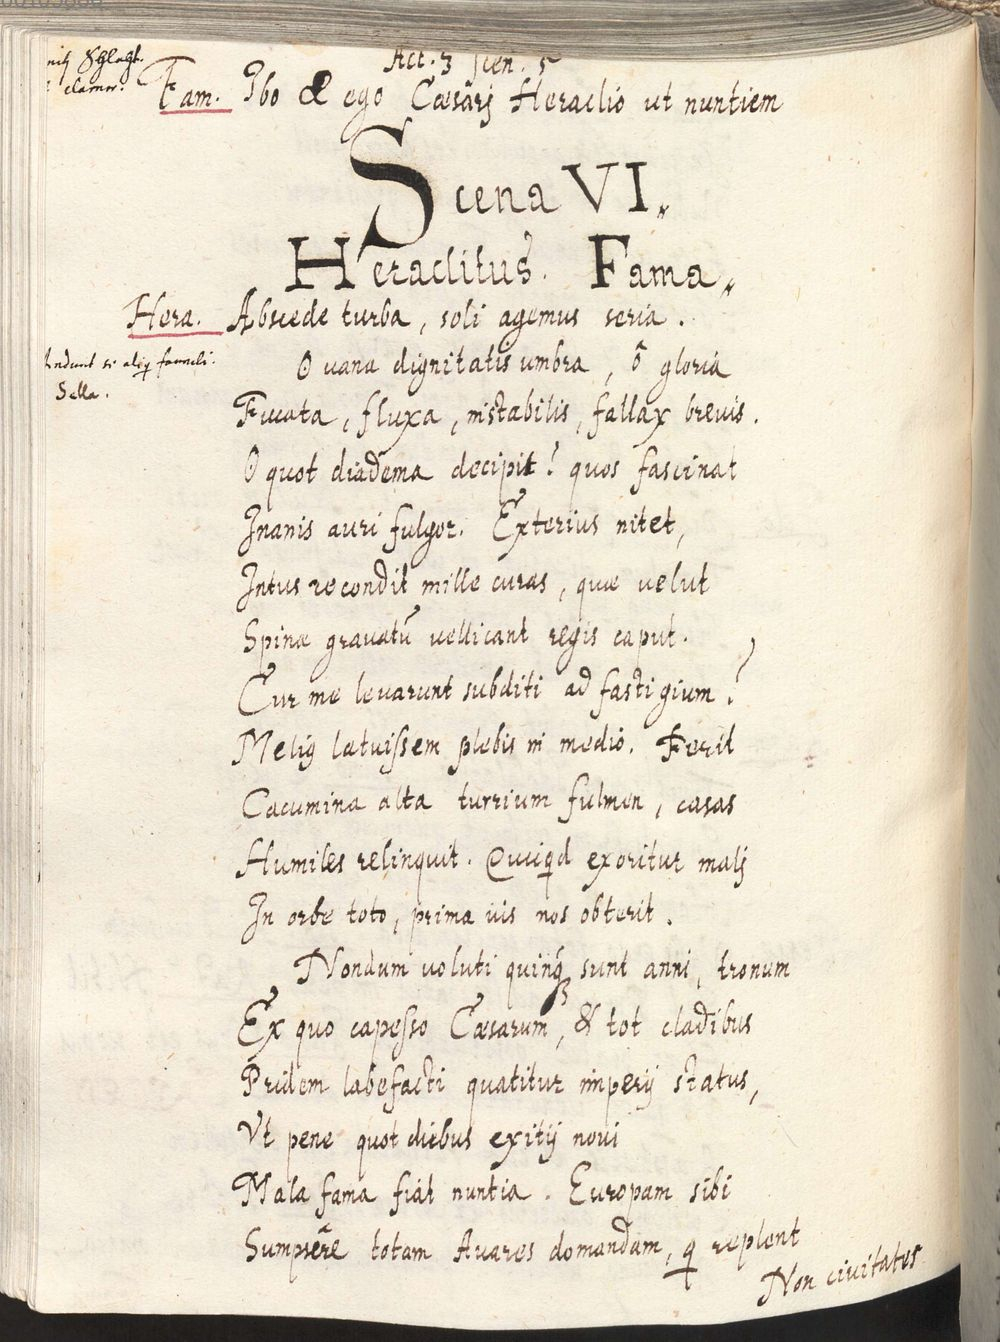 Act. 3 scen. 5
Fam. Ibo & ego Cæsarj Heraclio ut nuntiem
Scena VI.
Heraclitus. Fama.
Hera. Abscede turba, soli agemus seria.
O uana dignitatis umbra, ô gloria
Sella.
Fucata, fluxa, instabilis, fallax breuis.
O quot diadema decipit! quos fascinat
Inanis auri fulgor. Exterius nitet,
Intus recondit mille curas, quæ velut
Spinæ grauatū vellicant regis caput.
Cur me leuarunt subditi ad fastigium?
Meliꝰ latuissem plebis in medio. Ferit
Cacumina alta turrium fulmen, casas
Humiles relinquit. Quiqd exoritur malj
In orbe toto, prima uis nos obterit.
Nondum voluti quinqꝫ sunt anni, tronum
Ex quo capesso Cæsarum, & tot cladibus
Pridem labefacti quatitur imperij status,
Vt pene quot diebus exitij noui
Mala fama fiat nuntia. Europam sibi
Sumpsēre totam Auares domandam, q replent
Non ciuitates